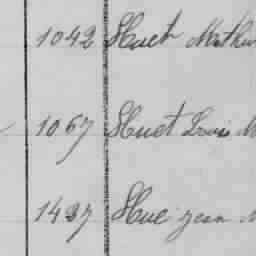 1042 Huet Mathur
1067 Huet Louis M
1437 Hue jean M